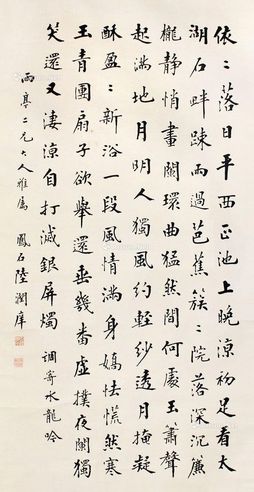 依〻落日平西正池上晚涼初足看太
湖石畔疎雨過芭蕉簇〻院落深沉簾
櫳靜悄畫闌環曲猛然間何處玉簫聲
起滿地月明人獨風約輕紗透月掩凝
酥盈〻新浴一段風情滿身嬌怯慌然寒
玉青團扇子欲舉還垂幾番虛撲夜闌獨
笑還又淒涼自打滅銀屏燭 調寄水龍吟
雨亭二兄大人雅屬 鳳石陸潤庠